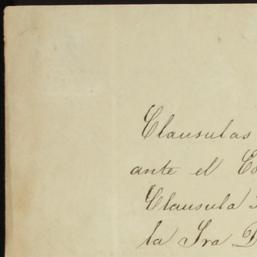 Clausulas
ante el
Clausula
la Sra